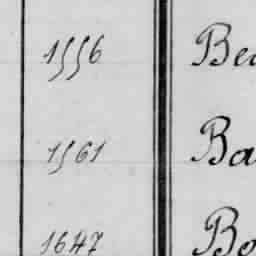 1556 Bea
1561 Ba
1647 Bo